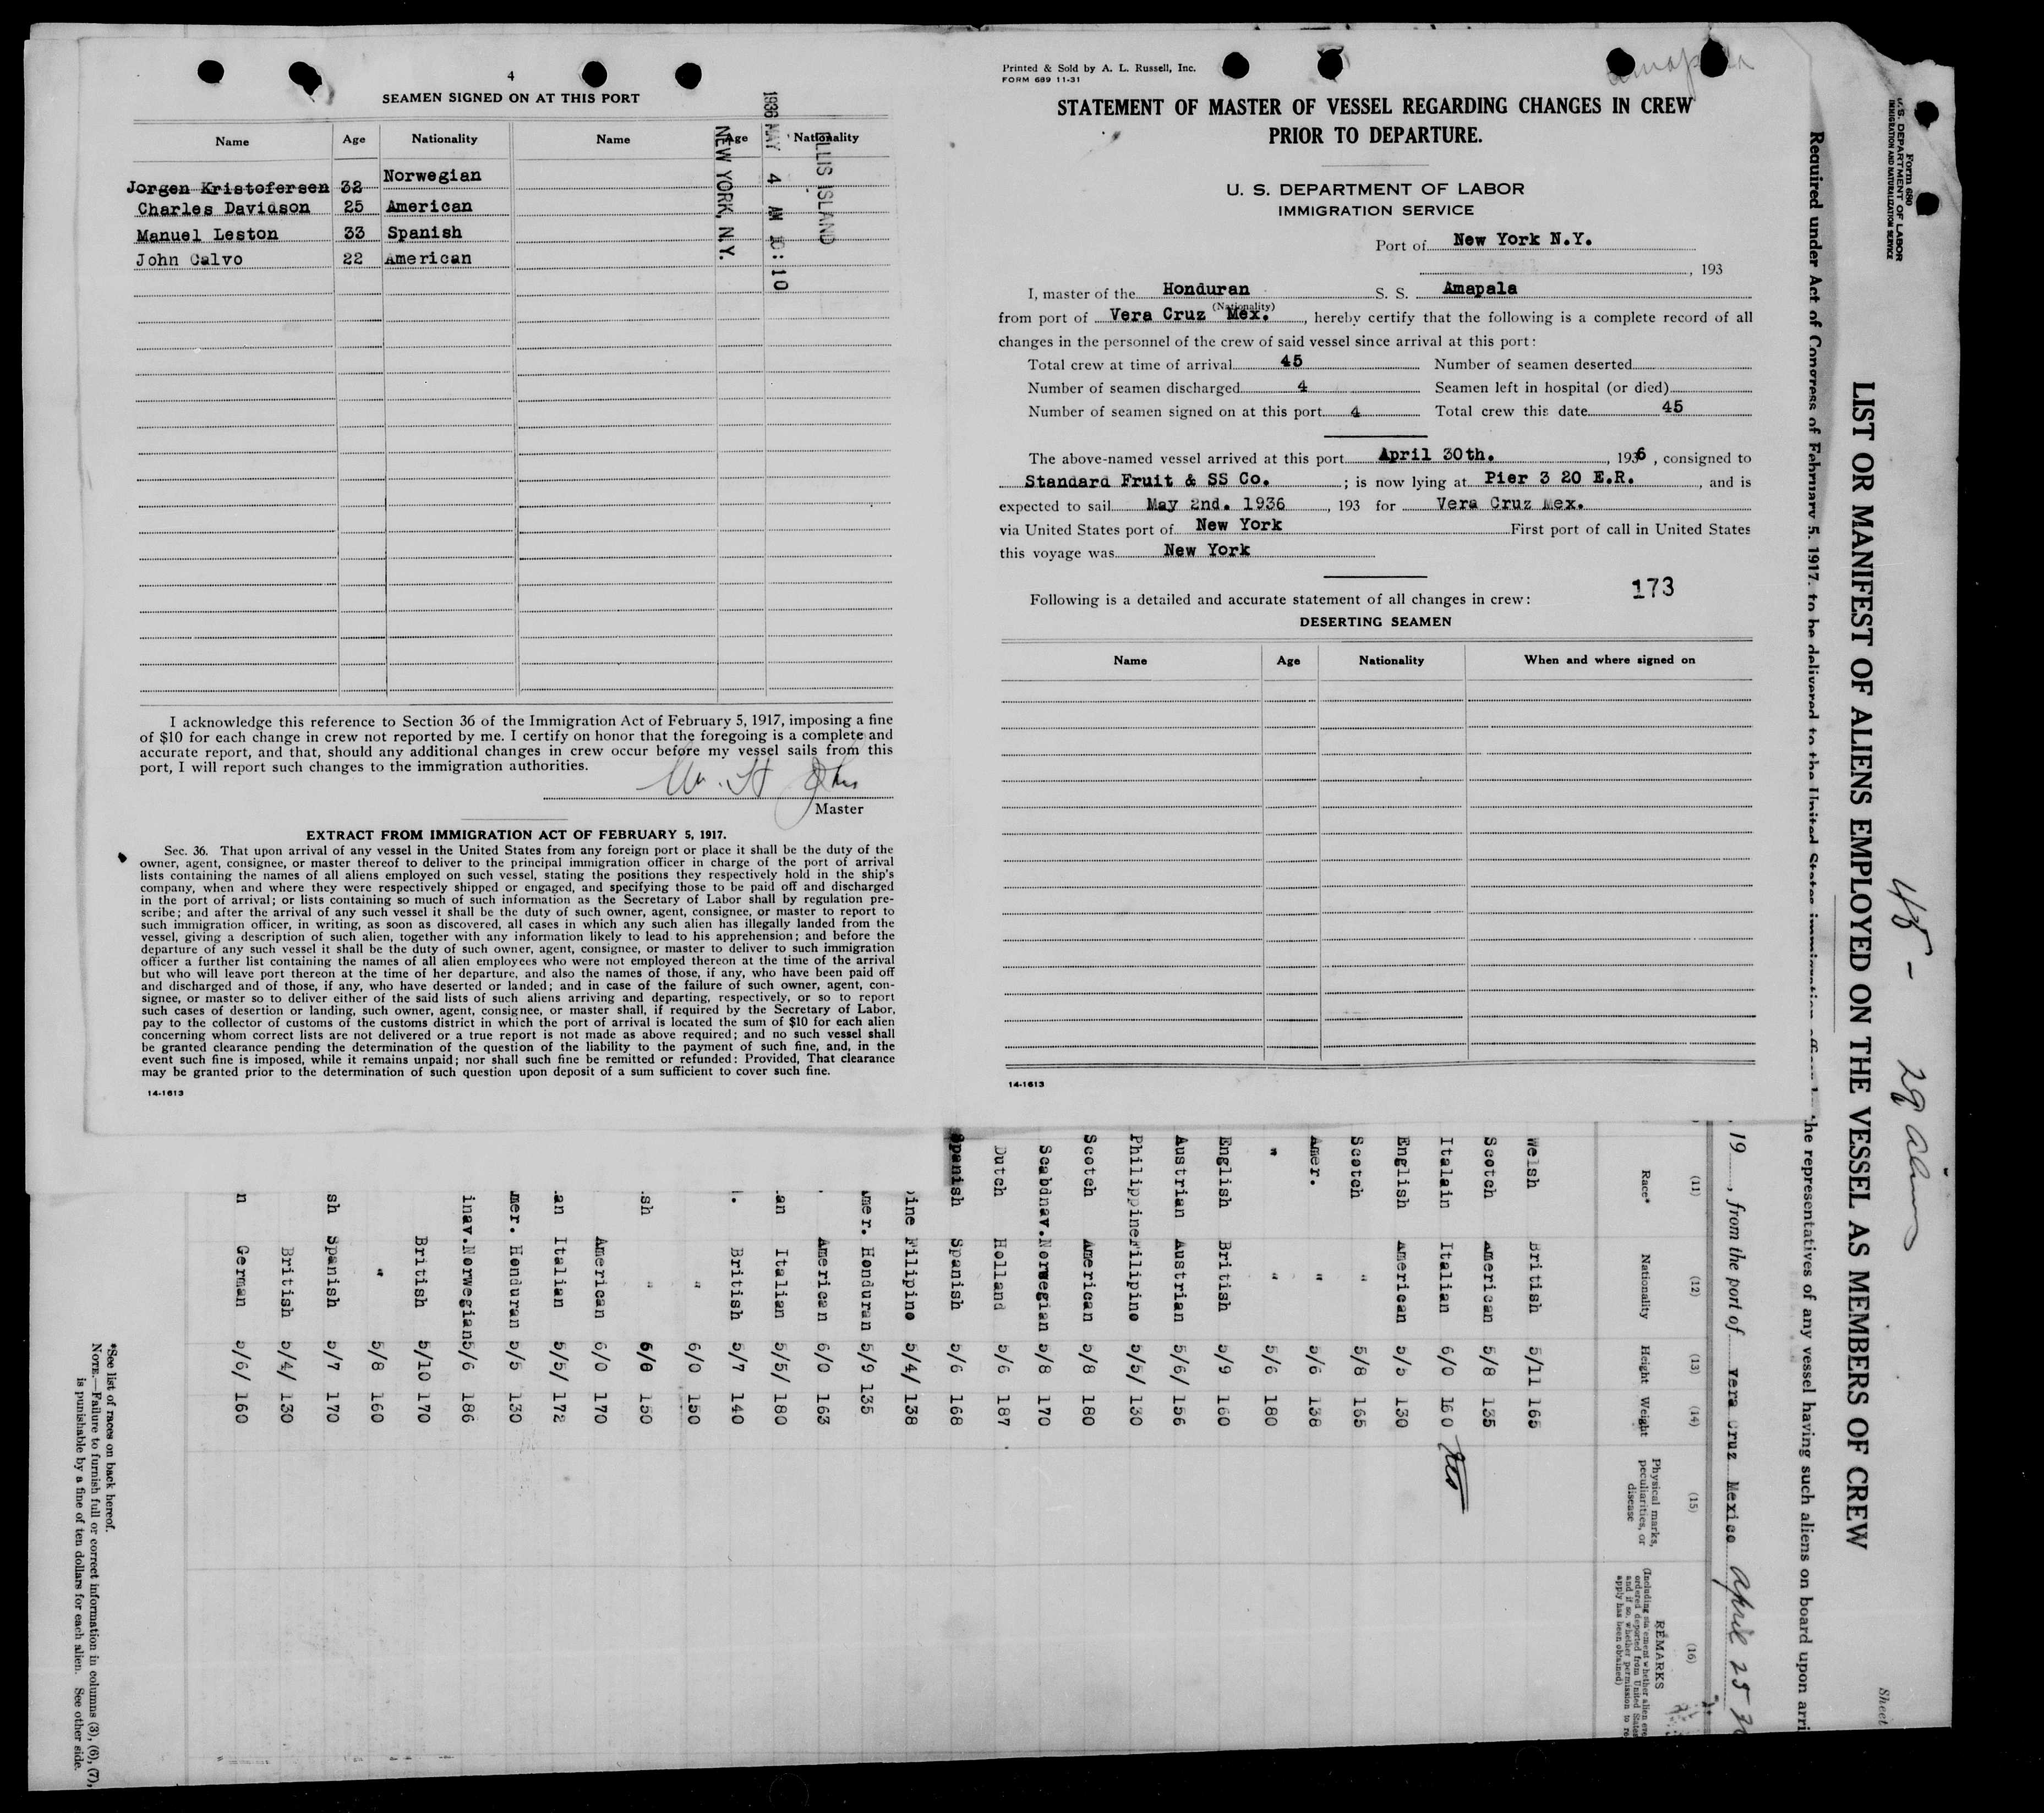 4
SEAMEN SIGNED ON AT THIS PORT
Name Age Nationality Name Age Nationality
Jorgen Kristofersen 32 Norwegian
Charles Davidson 25 American
Manuel Leston 33 Spanish
John Calvo 22 American
ELLIS ISLAND
1936 MAY 4 AM 10:10
NEW YORK, N.Y.
I acknowledge this reference to Section 36 of the Immigration Act of February 5, 1917, imposing a fine
of $10 for each change in crew not reported by me. I certify on honor that the foregoing is a complete and
accurate report, and that, should any additional changes in crew occur before my vessel sails from this
port, I will report such changes to the immigration authorities.
Master
EXTRACT FROM IMMIGRATION ACT OF FEBRUARY 5, 1917.
Sec. 36. That upon arrival of any vessel in the United States from any foreign port or place it shall be the duty of the
owner, agent, consignee, or master thereof to deliver to the principal immigration officer in charge of the port of arrival
lists containing the names of all aliens employed on such vessel, stating the positions they respectively hold in the ship's
company, when and where they were respectively shipped or engaged, and specifying those to be paid off and discharged
in the port of arrival; or lists containing so much of such information as the Secretary of Labor shall by regulation pre-
scribe; and after the arrival of any such vessel it shall be the duty of such owner, agent, consignee, or master to report to
such immigration officer, in writing, as soon as discovered, all cases in which any such alien has illegally landed from the
vessel, giving a description of such alien, together with any information likely to lead to his apprehension; and before the
departure of any such vessel it shall be the duty of such owner, agent, consignee, or master to deliver to such immigration
officer a further list containing the names of all alien employees who were not employed thereon at the time of the arrival
but who will leave port thereon at the time of her departure, and also the names of those, if any, who have been paid off
and discharged and of those, if any, who have deserted or landed; and in case of the failure of such owner, agent, con-
signee, or master so to deliver either of the said lists of such aliens arriving and departing, respectively, or so to report
such cases of desertion or landing, such owner, agent, consignee, or master shall, if required by the Secretary of Labor,
pay to the collector of customs of the customs district in which the port of arrival is located the sum of $10 for each alien
concerning whom correct lists are not delivered or a true report is not made as above required; and no such vessel shall
be granted clearance pending the determination of the question of the liability to the payment of such fine, and, in the
event such fine is imposed, while it remains unpaid; nor shall such fine be remitted or refunded: Provided, That clearance
may be granted prior to the determination of such question upon deposit of a sum sufficient to cover such fine.
14-1613
Printed & Sold by A. L. Russell, Inc.
FORM 689 11-31
Amapala
STATEMENT OF MASTER OF VESSEL REGARDING CHANGES IN CREW
PRIOR TO DEPARTURE.
U. S. DEPARTMENT OF LABOR
IMMIGRATION SERVICE
Port of New York N.Y.
, 193
I, master of the Honduran S. S. Amapala
(Nationality)
from port of Vera Cruz Mex. , hereby certify that the following is a complete record of all
changes in the personnel of the crew of said vessel since arrival at this port:
Total crew at time of arrival 45 Number of seamen deserted
Number of seamen discharged 4 Seamen left in hospital (or died)
Number of seamen signed on at this port 4 Total crew this date 45
The above-named vessel arrived at this port April 30th. , 1936 , consigned to
Standard Fruit & SS Co. ; is now lying at Pier 3 20 E.R. , and is
expected to sail May 2nd. 1936 , 193 for Vera Cruz Mex.
via United States port of New York First port of call in United States
this voyage was New York
173
Following is a detailed and accurate statement of all changes in crew:
DESERTING SEAMEN
Name Age Nationality When and where signed on
14-1613
Form 680
U. S. DEPARTMENT OF LABOR
IMMIGRATION AND NATURALIZATION SERVICE
45 - 29 aliens
Sheet
LIST OR MANIFEST OF ALIENS EMPLOYED ON THE VESSEL AS MEMBERS OF CREW
Required under Act of Congress of February 5, 1917, to be delivered to the United States immigration he representatives of any vessel having such aliens on board upon arri
19 , from the port of Vera Cruz Mexico April 25
(11) (12) (13) (14) (15) (16)
Race* Nationality Height Weight Physical marks, peculiarities, or disease REMARKS
(Including statement whether alien eve
ordered deported from United States
and if so, whether permission to re
apply has been obtained)
Welsh British 5/11 165
Scotch American 5/8 135
Italain Italian 6/0 160
English American 5/5 130
Scotch " 5/8 165
Amer. " 5/6 138
" " 5/6 180
English British 5/9 160
Austrian Austrian 5/6/ 156
Philippine Filipino 5/5/ 130
Scotch American 5/8 180
Scabdnav. Norwegian 5/8 170
Dutch Holland 5/6 187
Spanish Spanish 5/6 168
pine Filipino 5/4/ 138
mer. Honduran 5/9 135
. American 6/0 163
an Italian 5/5/ 180
. British 5/7 140
" 6/0 150
sh " 6/0 150
American 6/0 170
an Italian 5/5/ 172
mer. Honduran 5/5 130
inav. Norwegian 5/6 186
British 5/10 170
" 5/8 160
sh Spanish 5/7 170
British 5/4/ 130
n German 5/6/ 160
*See list of races on back hereof.
NOTE.—Failure to furnish full or correct information in columns (3), (6), (7),
is punishable by a fine of ten dollars for each alien. See other side.